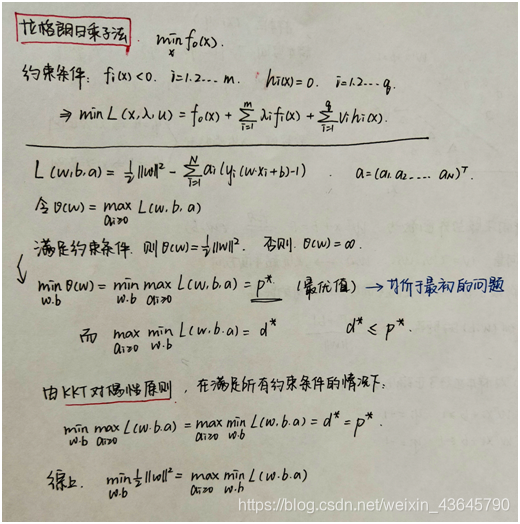 拉格朗日乘子法. min_x f₀(x).
约束条件: fᵢ(x)<0. i=1.2...m. hᵢ(x)=0. i=1.2...q.
⇒ min L(x,λ,u) = f₀(x) + Σ_{i=1}^{m} λᵢfᵢ(x) + Σ_{i=1}^{q} Vᵢhᵢ(x).
L(w,b,a) = ½||w||² - Σ_{i=1}^{N} aᵢ(yᵢ(w·xᵢ+b)-1) . a=(a₁.a₂.... a_N)ᵀ.
令θ(w) = max_{aᵢ≥0} L(w,b,a)
满足约束条件. 则θ(w)=½||w||². 否则. θ(w)=∞.
min_{w.b} θ(w) = min_{w.b} max_{aᵢ≥0} L(w,b.a) = p* (最优值) → 等价于最初的问题
而 max_{aᵢ≥0} min_{w.b} L(w,b.a) = d* d* ≤ p*.
由KKT对偶性原则, 在满足所有约束条件的情况下:
min_{w.b} max_{aᵢ≥0} L(w.b.a) = max_{aᵢ≥0} min_{w.b} L(w,b.a) = d* = p*.
综上. min_{w.b} ½||w||² = max_{aᵢ≥0} min_{w.b} L(w.b.a)
https://blog.csdn.net/weixin_43645790